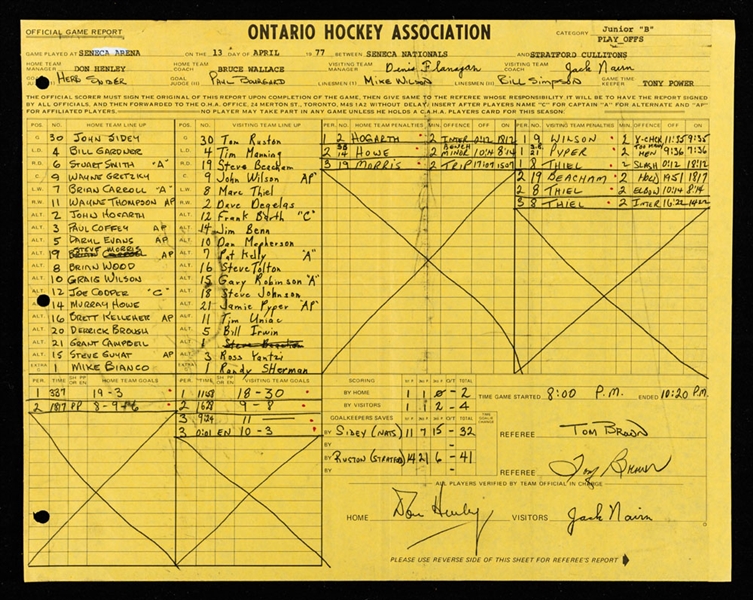 OFFICIAL GAME REPORT ONTARIO HOCKEY ASSOCIATION CATEGORY Junior "B" PLAY OFFS
GAME PLAYED AT SENECA ARENA ON THE 13 DAY OF APRIL 1977 BETWEEN SENECA NATIONALS AND STRATFORD CULLITONS
HOME TEAM MANAGER DON HENLEY HOME TEAM COACH BRUCE WALLACE VISITING TEAM MANAGER Denis Flanagan VISITING TEAM COACH Jack Nairn
GOAL JUDGE HERB SNIDER GOAL JUDGE (II) PAUL LINESMEN (I) MIKE WILSON LINESMEN (II) BILL SIMPSON GAME TIME KEEPER TONY POWER
THE OFFICIAL SCORER MUST SIGN THE ORIGINAL OF THIS REPORT UPON COMPLETION OF THE GAME, THEN GIVE SAME TO THE REFEREE WHOSE RESPONSIBILITY IT WILL BE TO HAVE THE REPORT SIGNED
BY ALL OFFICIALS, AND THEN FORWARDED TO THE O.H.A. OFFICE, 24 MERTON ST., TORONTO, M4S 1A2 WITHOUT DELAY. INSERT AFTER PLAYERS NAME "C" FOR CAPTAIN "A" FOR ALTERNATE AND "AP"
FOR AFFILIATED PLAYERS. NO PLAYER MAY TAKE PART IN ANY GAME UNLESS HE HOLDS A C.A.H.A. PLAYERS CARD FOR THIS SEASON.
POS. NO. HOME TEAM LINE UP POS. NO. VISITING TEAM LINE UP PER. NO. HOME PENALTIES MIN. OFFENCE OFF ON PER. NO. VISITING PENALTIES MIN. OFFENCE OFF ON
G 30 JOHN SIDEY G 30 Tom Ruston 1 2 HOGARTH 2 INTER 0:12 18:12 1 9 WILSON 2 X-CHCK 11:35 9:35
L.D. 4 BILL GARDNER L.D. 4 Tim Manning 2 14 HOWE 2 BENCH MINOR 10:14 8:14 1 21 PYPER 2 TOO MANY MEN 9:36 7:36
R.D. 6 STUART SMITH "A" R.D. 19 Steve Beacham 3 19 MORRIS 2 TRIP 17:07 15:07 1 8 THIEL 2 SLASH 0:12 18:12
C. 9 WAYNE GRETZKY C. 9 John Wilson AP 2 19 BEACHAM 2 HOLD 19:51 18:17
L.W. 7 BRIAN CARROLL "A" L.W. 8 Marc Thiel 2 8 THIEL 2 ELBOW 10:14 8:14
R.W. 11 WAYNE THOMPSON AP R.W. 2 Dave Degelas 3 8 THIEL 2 INTER 16:22 14:22
ALT. 2 JOHN HOGARTH ALT. 12 Frank Barth "C"
ALT. 3 PAUL COFFEY AP ALT. 14 Jim Benn
ALT. 5 DARYL EVANS AP ALT. 10 Dan Mcpherson
ALT. 19 STEVE MORRIS AP ALT. 7 Pat Kelly "A"
ALT. 8 BRIAN WOOD ALT. 16 Steve Tolton
ALT. 10 GRAIG WILSON ALT. 15 Gary Robinson "A"
ALT. 12 JOE COOPER "C" ALT. 18 Steve Johnson
ALT. 14 MURRAY HOWE ALT. 21 Jamie Pyper AP
ALT. 16 BRETT KELLEHER AP ALT. 11 Tim Uniac
ALT. 20 DERRICK BROUSH ALT. 5 Bill Irwin
ALT. 21 GRANT CAMPBELL ALT. 1
ALT. 15 STEVE GUYAT AP ALT. 3 Ross Yantzi
EXTRA G 1 MIKE BIANCO EXTRA G 1 Randy SHerman
PER. TIME SH PP OR EN HOME TEAM GOALS PER. TIME SH PP OR EN VISITING TEAM GOALS SCORING TOTAL
1 337 19-3 1 18-30 BY HOME 1 1 0 - 2 TIME GAME STARTED 8:00 P.M. ENDED 10:20 P.M.
2 1817 PP 2 1628 9-8 BY VISITORS 1 1 2 - 4
3 11 GOALKEEPERS SAVES O/T TOTAL TIME GOALS CHANGE
3 0:01 EN 10-3 BY SIDEY (NATS) 11 7 15 - 32 REFEREE TOM BROWN
BY
BY RUSTON (STRATFD) 14 21 6 - 41 REFEREE Tom Brown
BY
ALL PLAYERS VERIFIED BY TEAM OFFICIAL IN CHARGE
HOME Don Henley VISITORS Jack Nairn
PLEASE USE REVERSE SIDE OF THIS SHEET FOR REFEREE'S REPORT